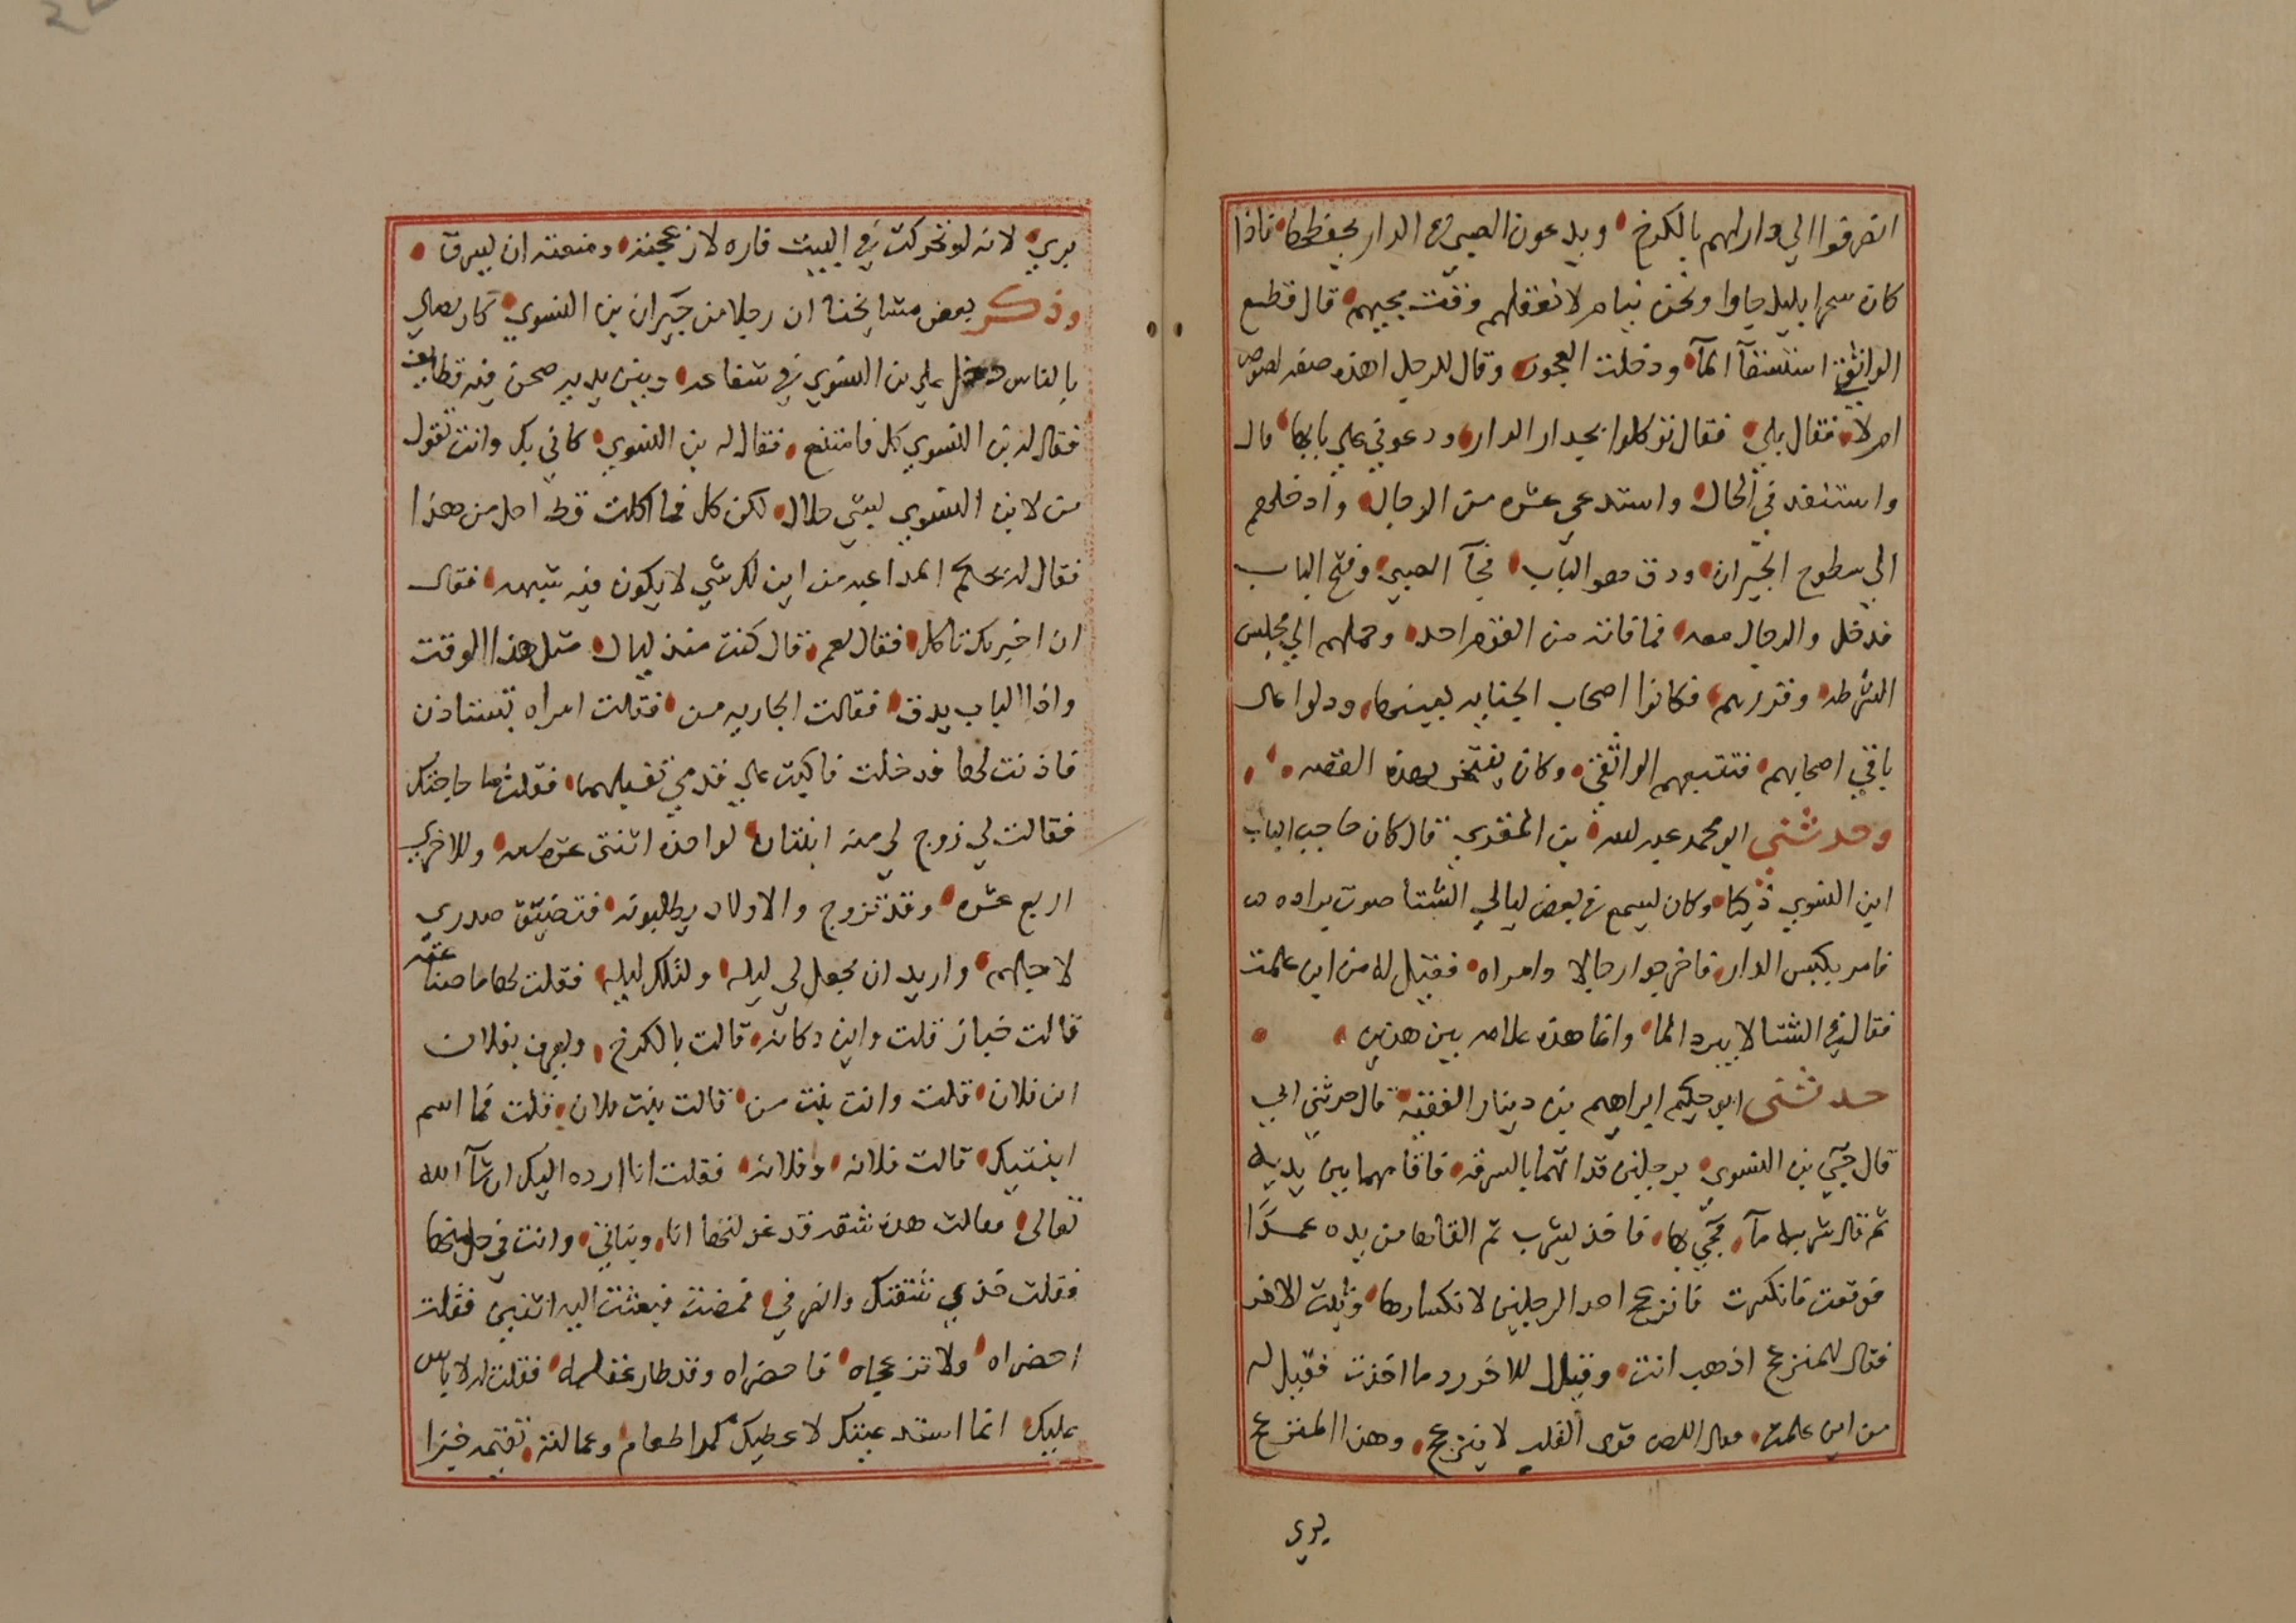 انصرفوا الي دارلهم بالكرخ ويدعون الصبي في الدار يحفظها فاذا
كان سحرا بليل جاوا ونحن نيام لا نعقلهم وقت مجيهم قال فقطع
الواثقي استسقآ المآ ودخلت العجون وقال للرجل اهذه صفه لصوص
ام لا فقال بلي فقال توكلوا بجدار الدار ودعوني علي بابها قال
واستنفد في الحال واستدعي عشره من الرجال وادخلهم
الي سطوح الجيران ودق هو الباب فجآ الصبي وفتح الباب
فدخل والرجال معه فما فاته من القوم احد وحملهم الي مجلس
الشرطه وقررهم فكانوا اصحاب الجنايه بعينها ودلوا علي
باقي اصحابهم فتتبعهم الواثقي وكان يفتخر بهذه القصه
وحدثني ابو محمد عبد لله بن المقري قال كان حاجب الباب
ابن النسوي ذكيا وكان يسمع في بعض ليالي الشتا صوت براده
فامر بكبس الدار فاخرجوا رجالا وامراه فقيل له من اين علمت
فقال في الشتا لا يبرد الما وانما هذه علامه بين هذين
حدثني ابو حكيم ابراهيم بن دينار الفقيه قال حدثني ابي
قال جيي بن النسوي برجلين قد اتهما بالسرقه فاقامهما بين يديه
ثم قال شربه مآ فجي بها فاخذ يشرب ثم القاها من يده عمدًا
فوقعت فانكسرت فانزعج احد الرجلين لانكسارها وثبت الاخر
فقال للمنزعج اذهب انت وقال للاخر رد ما اخذت فقيل له
من اين علمت فقال اللص قوي القلب لا ينزعج وهذا المنزعج
بري
بري لانه لو تحركت في البيت فاره لازعجته ومنعته ان يسرق
وذكر بعض مشايخنا ان رجلا من جيران بن النسوي كان يصلي
بالناس دخل علي بن النسوي في شفاعه وبين يديه صحن فيه قطايف
فقال له بن النسوي كل فامتنع فقال له بن النسوي كاني بك وانت تقول
من لابن النسوي بشي حلال لكن كل فما اكلت قط احل من هذا
فقال له بحكم المداعبه من اين لك شي لا يكون فيه شبهه فقال
ان اخبرتك تاكل فقال نعم قال كنت منذ ليال مثل هذا الوقت
واذا الباب يدق فقالت الجاريه من فقالت امراه تستاذن
فاذنت لها فدخلت فاكبت علي قدمي تقبلهما فقلت ما حاجتك
فقالت لي زوج لي منه ابنتان لواحده اثنتي عشره سنه وللاخري
اربع عشره وقد تزوج والاولاد يطلبونه فتضيق صدري
لاجلهم واريد ان يجعل لي ليله ولتلك ليله فقلت لها ما صناعته
قالت خباز قلت واين دكانه قالت بالكرخ ويعرف بفلان
ابن فلان قلت وانت بنت من قالت بنت فلان قلت فما اسم
ابنتيك قالت فلانه وفلانه فقلت انا ارده اليك ان شآ الله
تعالي فقالت هذه شقه قد غزلتها انا وبناتي وانت في حل منها
فقلت خذي شقتك وانصرفي فمضت فبعثت اليه اثنين فقلت
احضراه ولا تزعجاه فاحضراه وقد طار عقله فقلت له لا باس
عليك انما استدعيتك لاعطيك كرا طعام وعمالته تقيمه خبزا